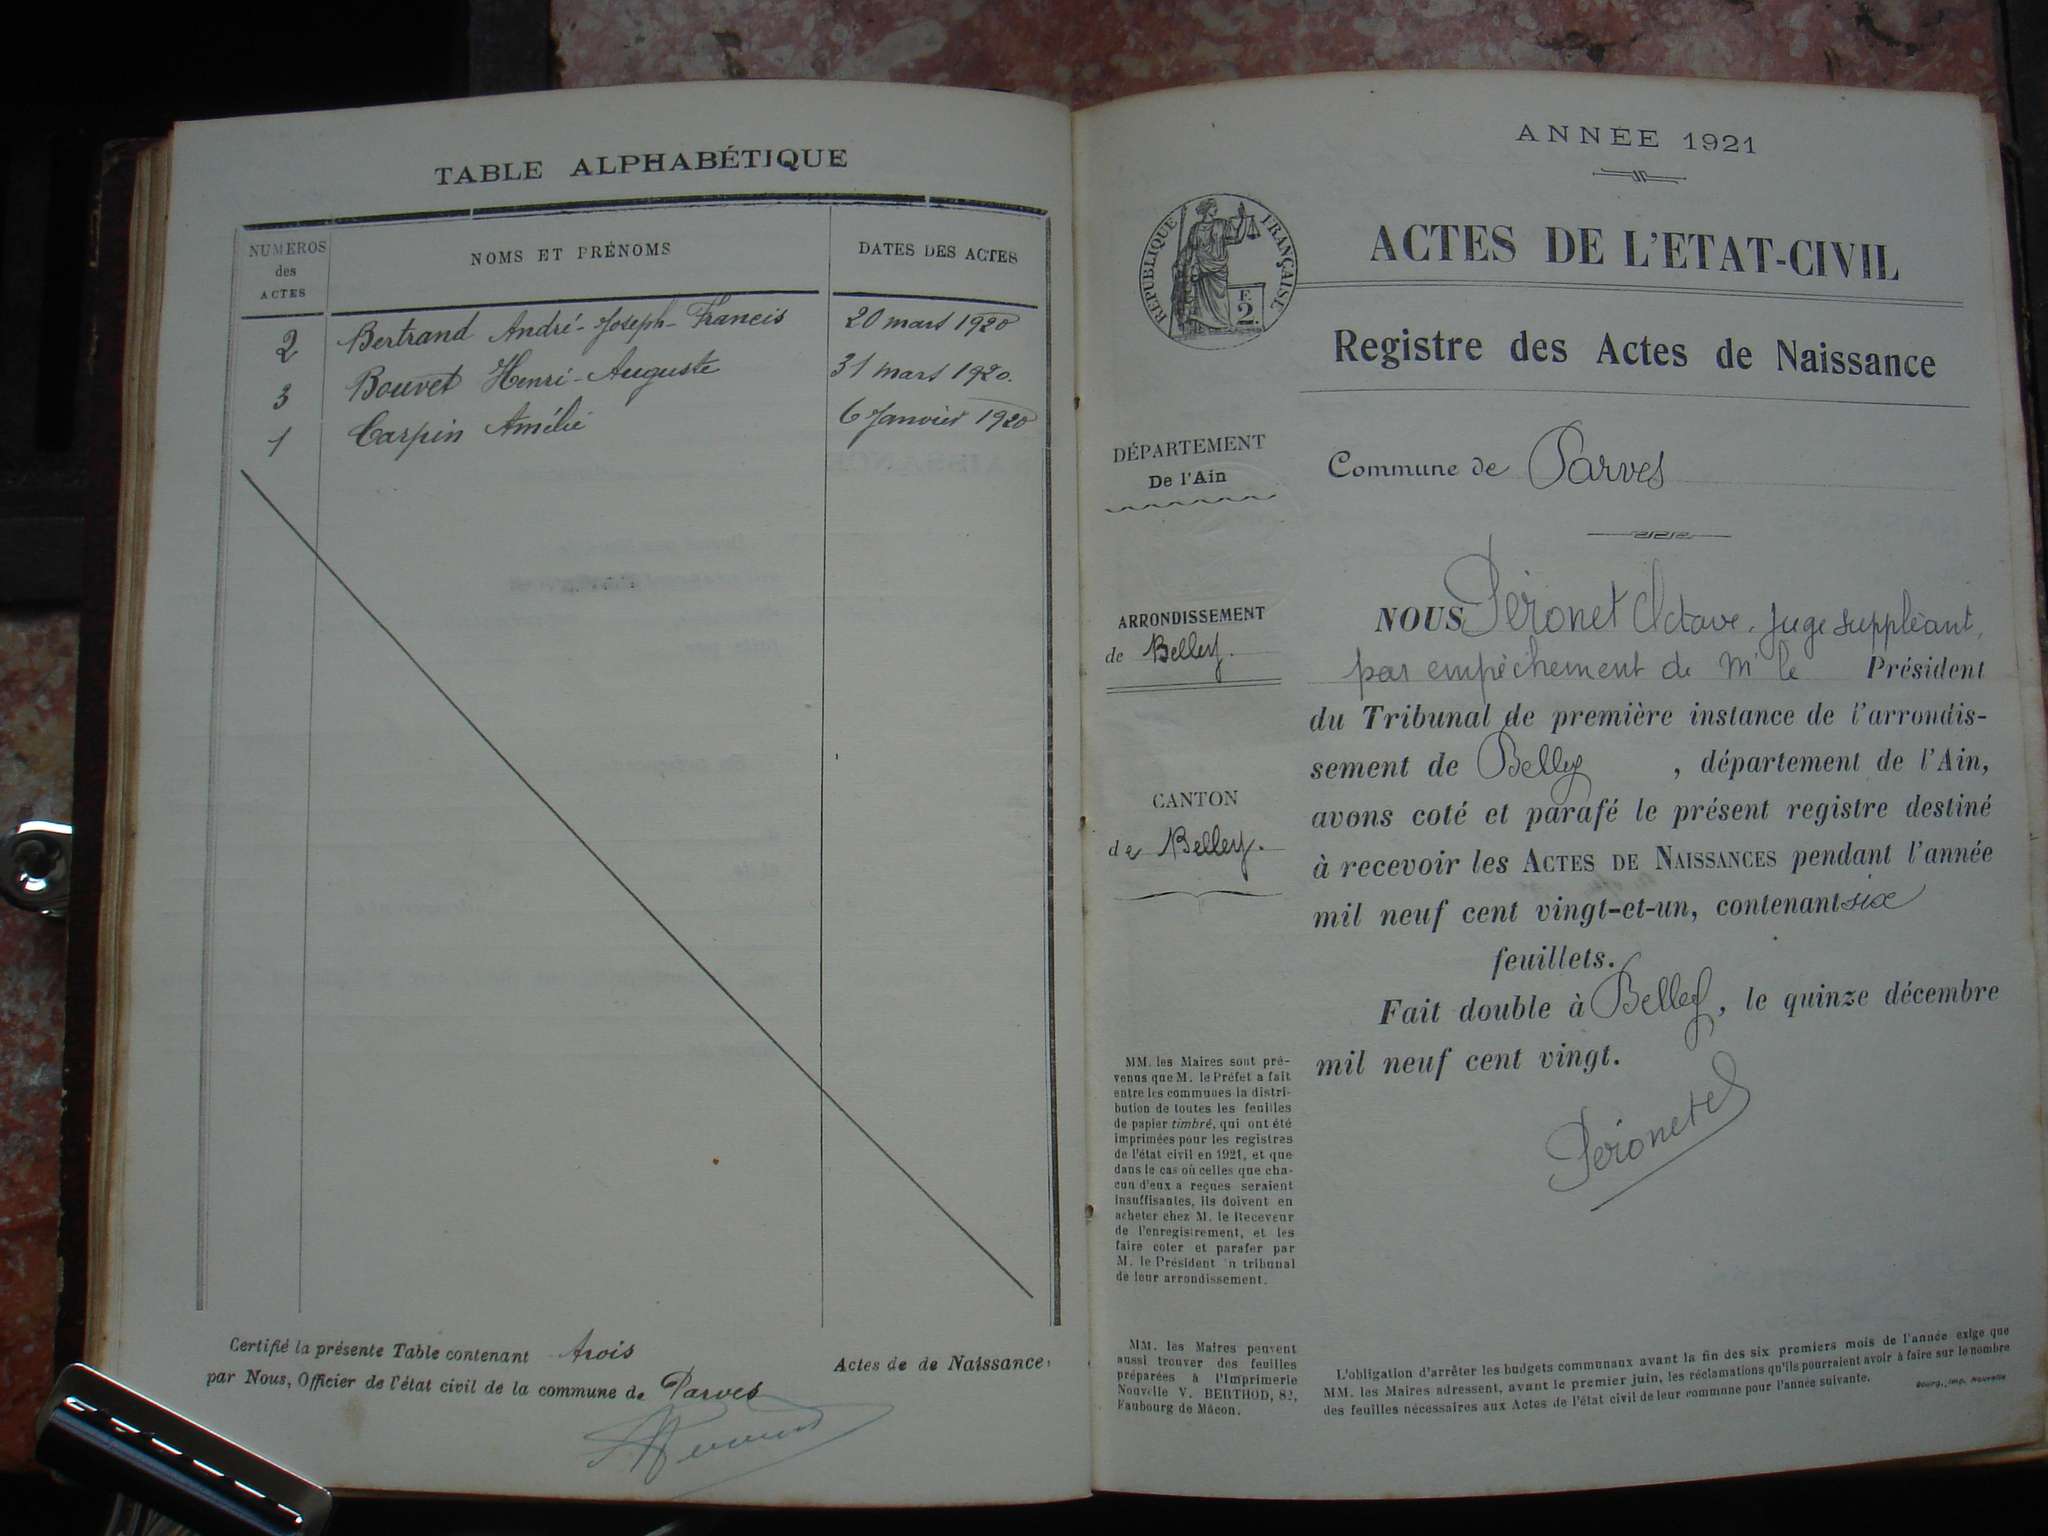 TABLE ALPHABÉTIQUE
NUMEROS
des
ACTES
NOMS ET PRÉNOMS
DATES DES ACTES
2 Bertrand André-Joseph-Francis 20 mars 1920
3 Bouvet Henri-Auguste 31 mars 1920.
1 Carpin Amélie 6 Janvier 1920
Certifié la présente Table contenant trois Actes de de Naissance
par Nous, Officier de l'état civil de la commune de Parves
ANNÉE 1921
RÉPUBLIQUE FRANÇAISE
F.
2.
ACTES DE L'ETAT-CIVIL
Registre des Actes de Naissance
DÉPARTEMENT
De l'Ain
Commune de Parves
ARRONDISSEMENT
de Belley.
CANTON
de Belley.
NOUS Péronet Octave, juge suppléant,
par empêchement de Mr le Président
du Tribunal de première instance de l'arrondis-
sement de Belley, département de l'Ain,
avons coté et parafé le présent registre destiné
à recevoir les ACTES DE NAISSANCES pendant l'année
mil neuf cent vingt-et-un, contenant six
feuillets.
Fait double à Belley, le quinze décembre
mil neuf cent vingt.
Peronet
MM. les Maires sont pré-
venus que M. le Préfet a fait
entre les communes la distri-
bution de toutes les feuilles
de papier timbré, qui ont été
imprimées pour les registres
de l'état civil en 1921, et que
dans le cas où celles que cha-
cun d'eux a reçues seraient
insuffisantes, ils doivent en
acheter chez M. le Receveur
de l'enregistrement, et les
faire coter et parafer par
M. le Président n tribunal
de leur arrondissement.
MM. les Maires peuvent
aussi trouver des feuilles
préparées à l'Imprimerie
Nouvelle V. BERTHOD, 82,
Faubourg de Mâcon.
L'obligation d'arrêter les budgets communaux avant la fin des six premiers mois de l'année exige que
MM. les Maires adressent, avant le premier juin, les réclamations qu'ils pourraient avoir à faire sur le nombre
des feuilles nécessaires aux Actes de l'état civil de leur commune pour l'année suivante.
Bourg, Imp. Nouvelle